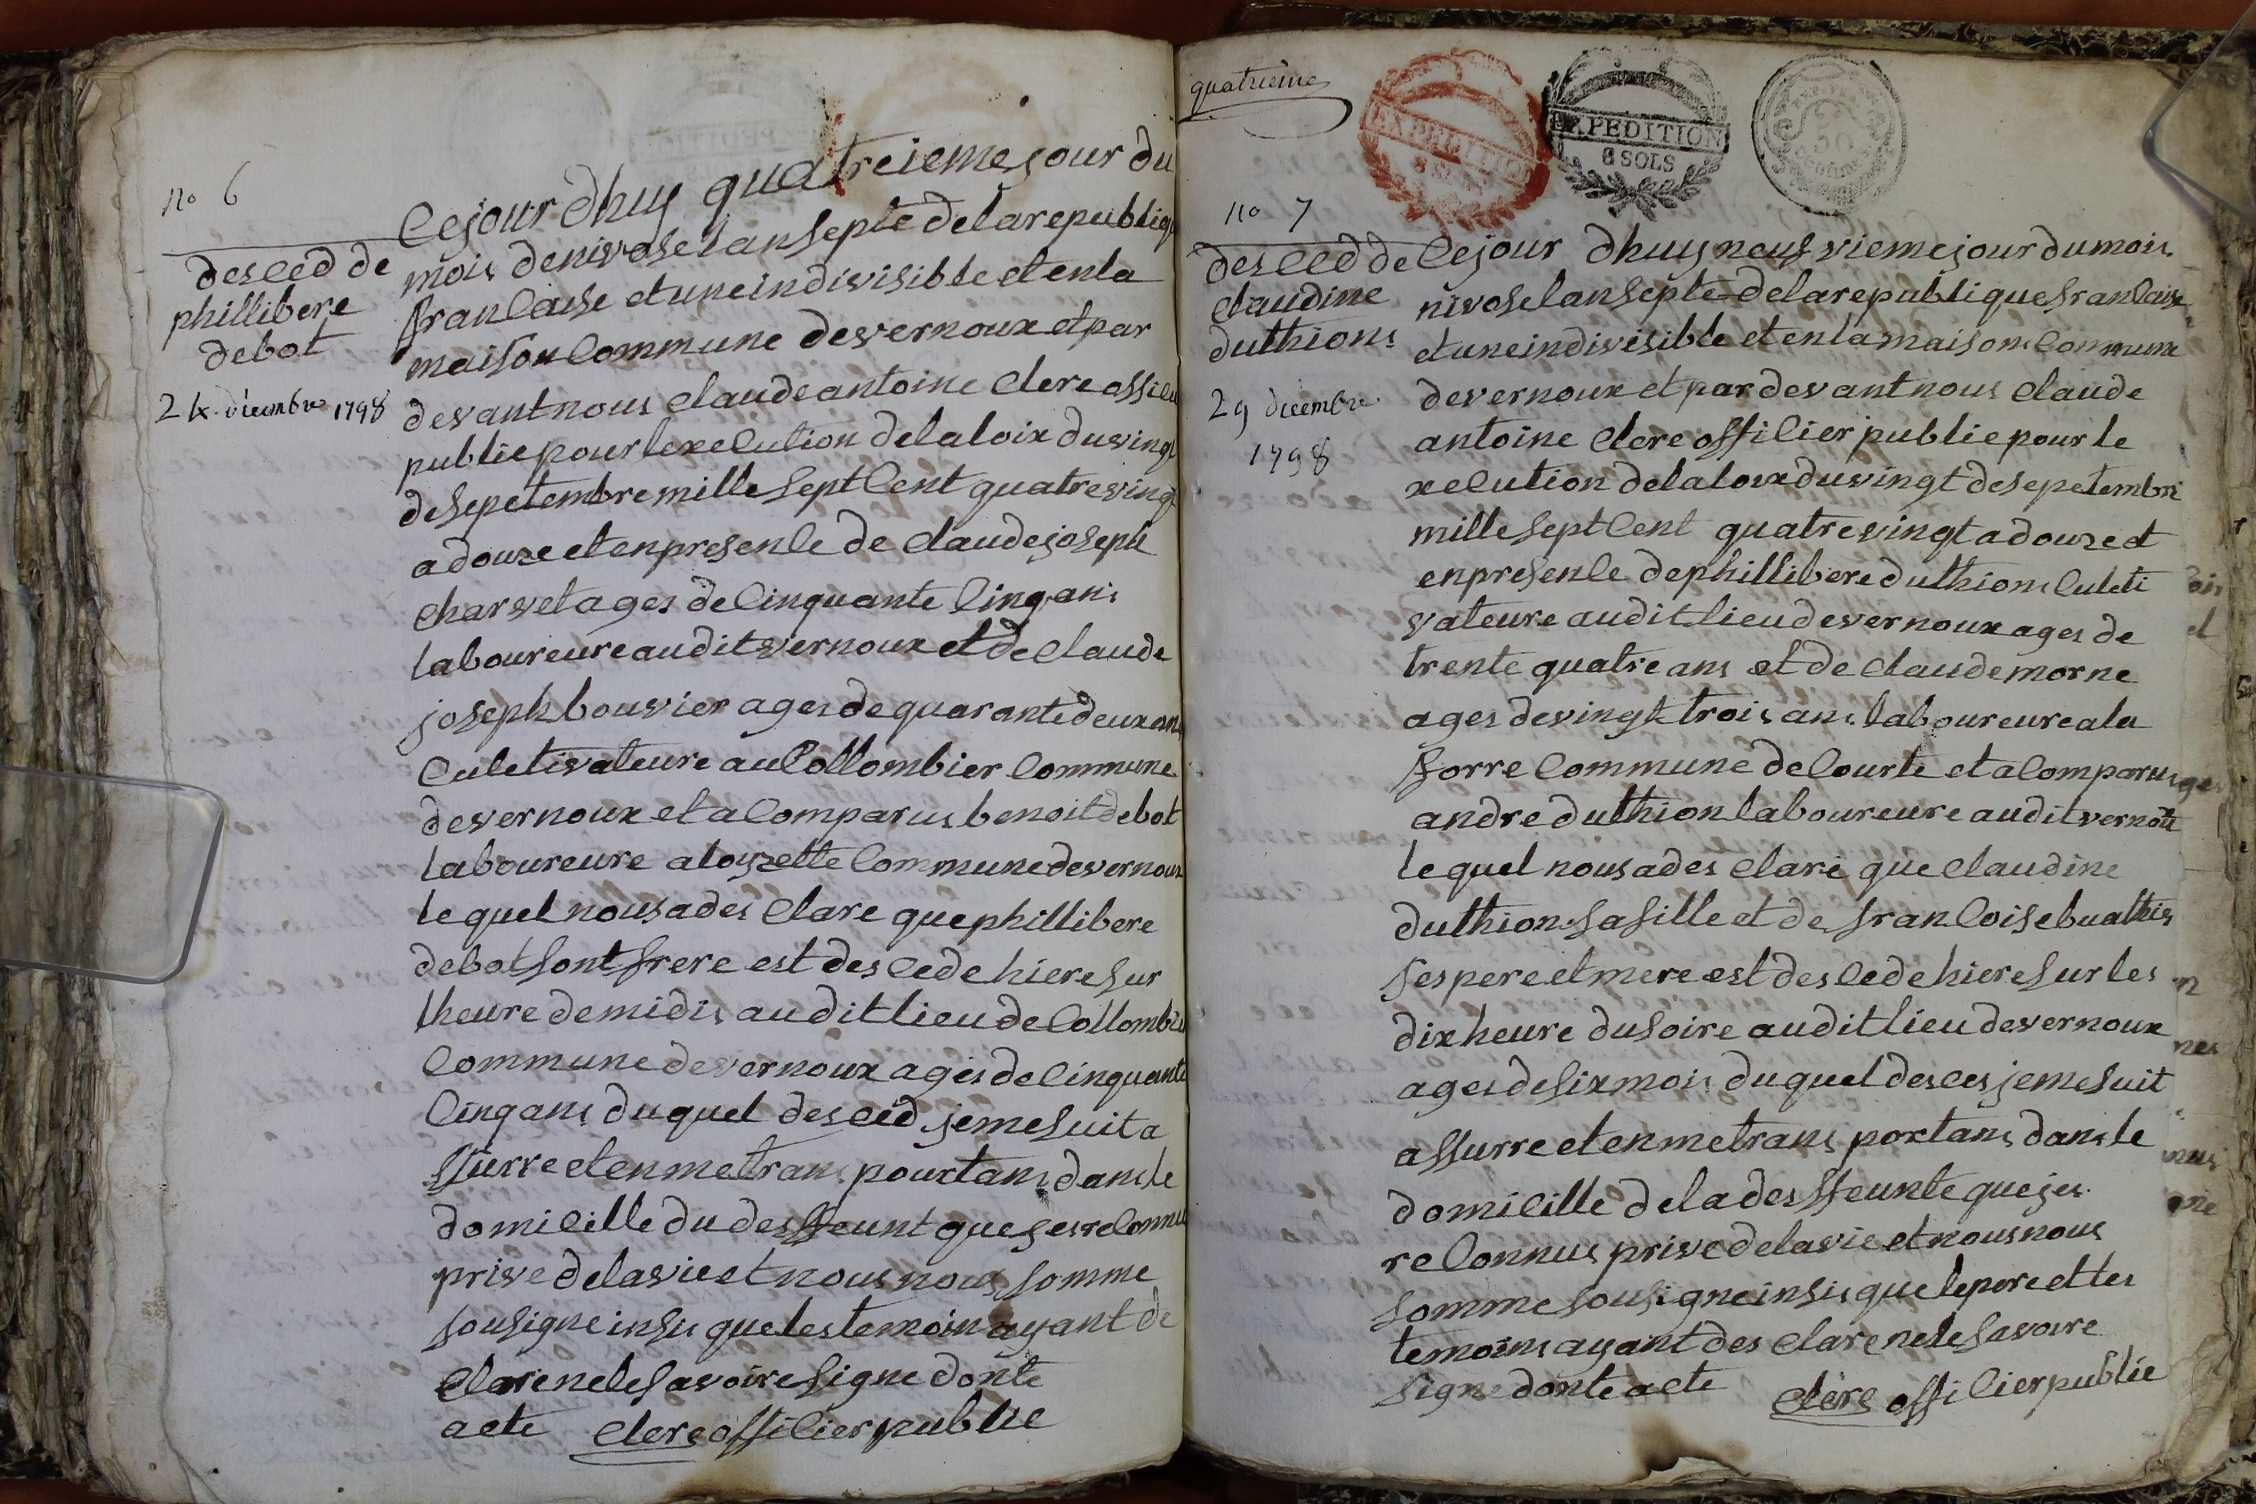 no 6
desced de
phillibere
debot
24 décembre 1798
Cejour dhuy quatreieme jour du
mois denivose lan septe delarepublique
francaise etuneindivisible etenla
maison Commune devernoux etpar
devantnous claude antoine clere officie
publicpourlexecution delaloix duvingt
desepetembremille septcent quatrevingt
adouze etenpresence de claudejoseph
charvetages de cinquante cinqans
laboureureauditvernoux etdeclaude
joseph bouvier ages dequarantedeuxans
culetivateure aucollombier commune
devernoux etacomparus benoitdebot
laboureure alouzette communedevernoux
lequel nousades clare quephillibere
debotsont frere est descede hiere sur
lheure demidis auditlieudecollombie
commune devernoux ages decinquante
cinqans duquel desced jemesuita
ssurre etenmetrans pourtans dansle
domicille du desseunt quejesreconnus
prive delavieetnousnous somme
sousigneinsis quelestemoin ayant de
clarenelesavoiresigne donte
acte clereofficierpublic
quatrieme
EXPEDITION
8 SOLS
EXPEDITION
8 SOLS
50
no 7
desced de
claudine
duthions
29 décembre
1798
Cejour dhuy neufvieme jour dumois
nivoselanseptedelarepubliquefrancaise
etuneindivisible etenlamaison commune
devernoux etpardevantnous claude
antoine clere officierpublicpourle
xecution delaloixduvingt desepetembre
mille septcent quatrevingtadouzeet
enpresence dephillibereduthion culeti
vateure auditlieudevernoux ages de
trente quatreans et de claudemorne
ages devingt trois ans laboureureala
forre commune decourte etacomparus
andre duthion laboureure auditvernoux
lequel nousades clare que claudine
duthion safille et de francoisebuathier
sespere etmere est descede hieresurles
dixheure dusoire auditlieu devernoux
ages desixmois duquel desces jemesuit
assurre etenmetrans portans dansle
domicille deladesseunte quejes
reconnus privedelavie etnousnous
sommesousigneinsis quelepere etles
temoins ayant des clare nelesavoire
signe donte acte clere officierpublic